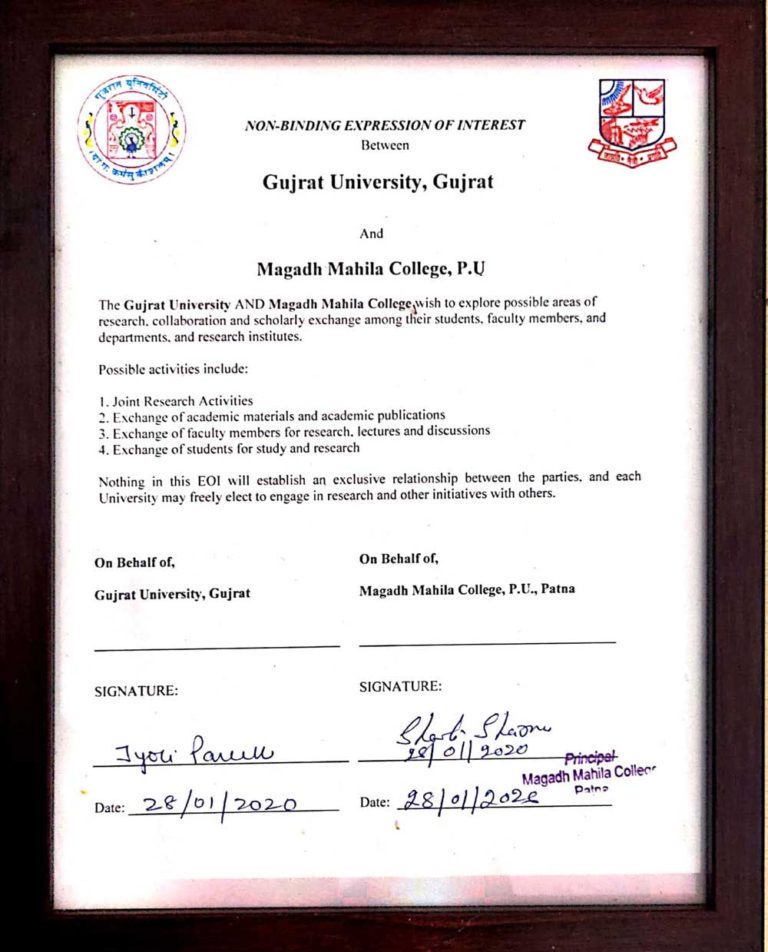 गुजरात युनिवर्सिटी
योगः कर्मसु कौशलम्
NON-BINDING EXPRESSION OF INTEREST
Between
Gujrat University, Gujrat
And
Magadh Mahila College, P.U
The Gujrat University AND Magadh Mahila College wish to explore possible areas of
research, collaboration and scholarly exchange among their students, faculty members, and
departments, and research institutes.
Possible activities include:
1. Joint Research Activities
2. Exchange of academic materials and academic publications
3. Exchange of faculty members for research, lectures and discussions
4. Exchange of students for study and research
Nothing in this EOI will establish an exclusive relationship between the parties, and each
University may freely elect to engage in research and other initiatives with others.
On Behalf of,
Gujrat University, Gujrat
SIGNATURE:
Jyoti
Date: 28/01/2020
On Behalf of,
Magadh Mahila College, P.U., Patna
SIGNATURE:
28/01/2020
Principal
Magadh Mahila College
Patna
Date: 28/01/2020